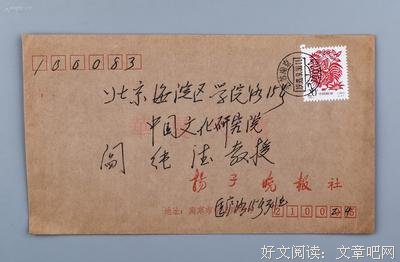 100083
北京海淀区学院路15号
中国文化研究院
阎纯德教授
扬子晚报社
地址:南京市
2100
好文阅读:文章吧网